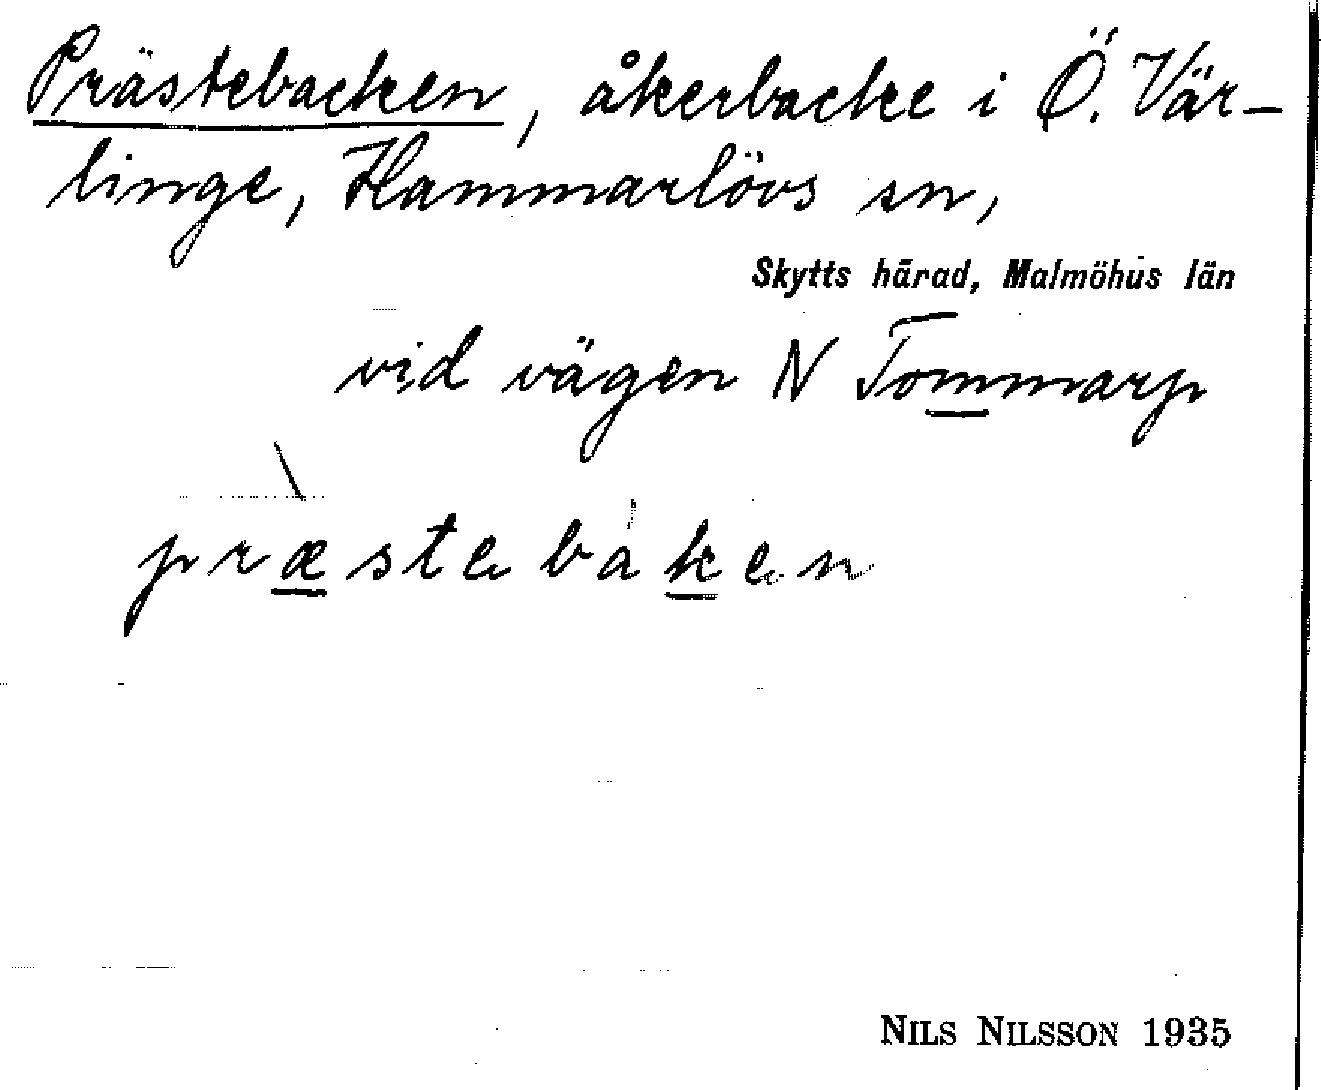 Prästebacken, åkerbacke i Ö. Vär-
linge, Hammarlövs sn,
Skytts härad, Malmöhus län
vid vägen N Tommarp
præstebaken
NILS NILSSON 1935